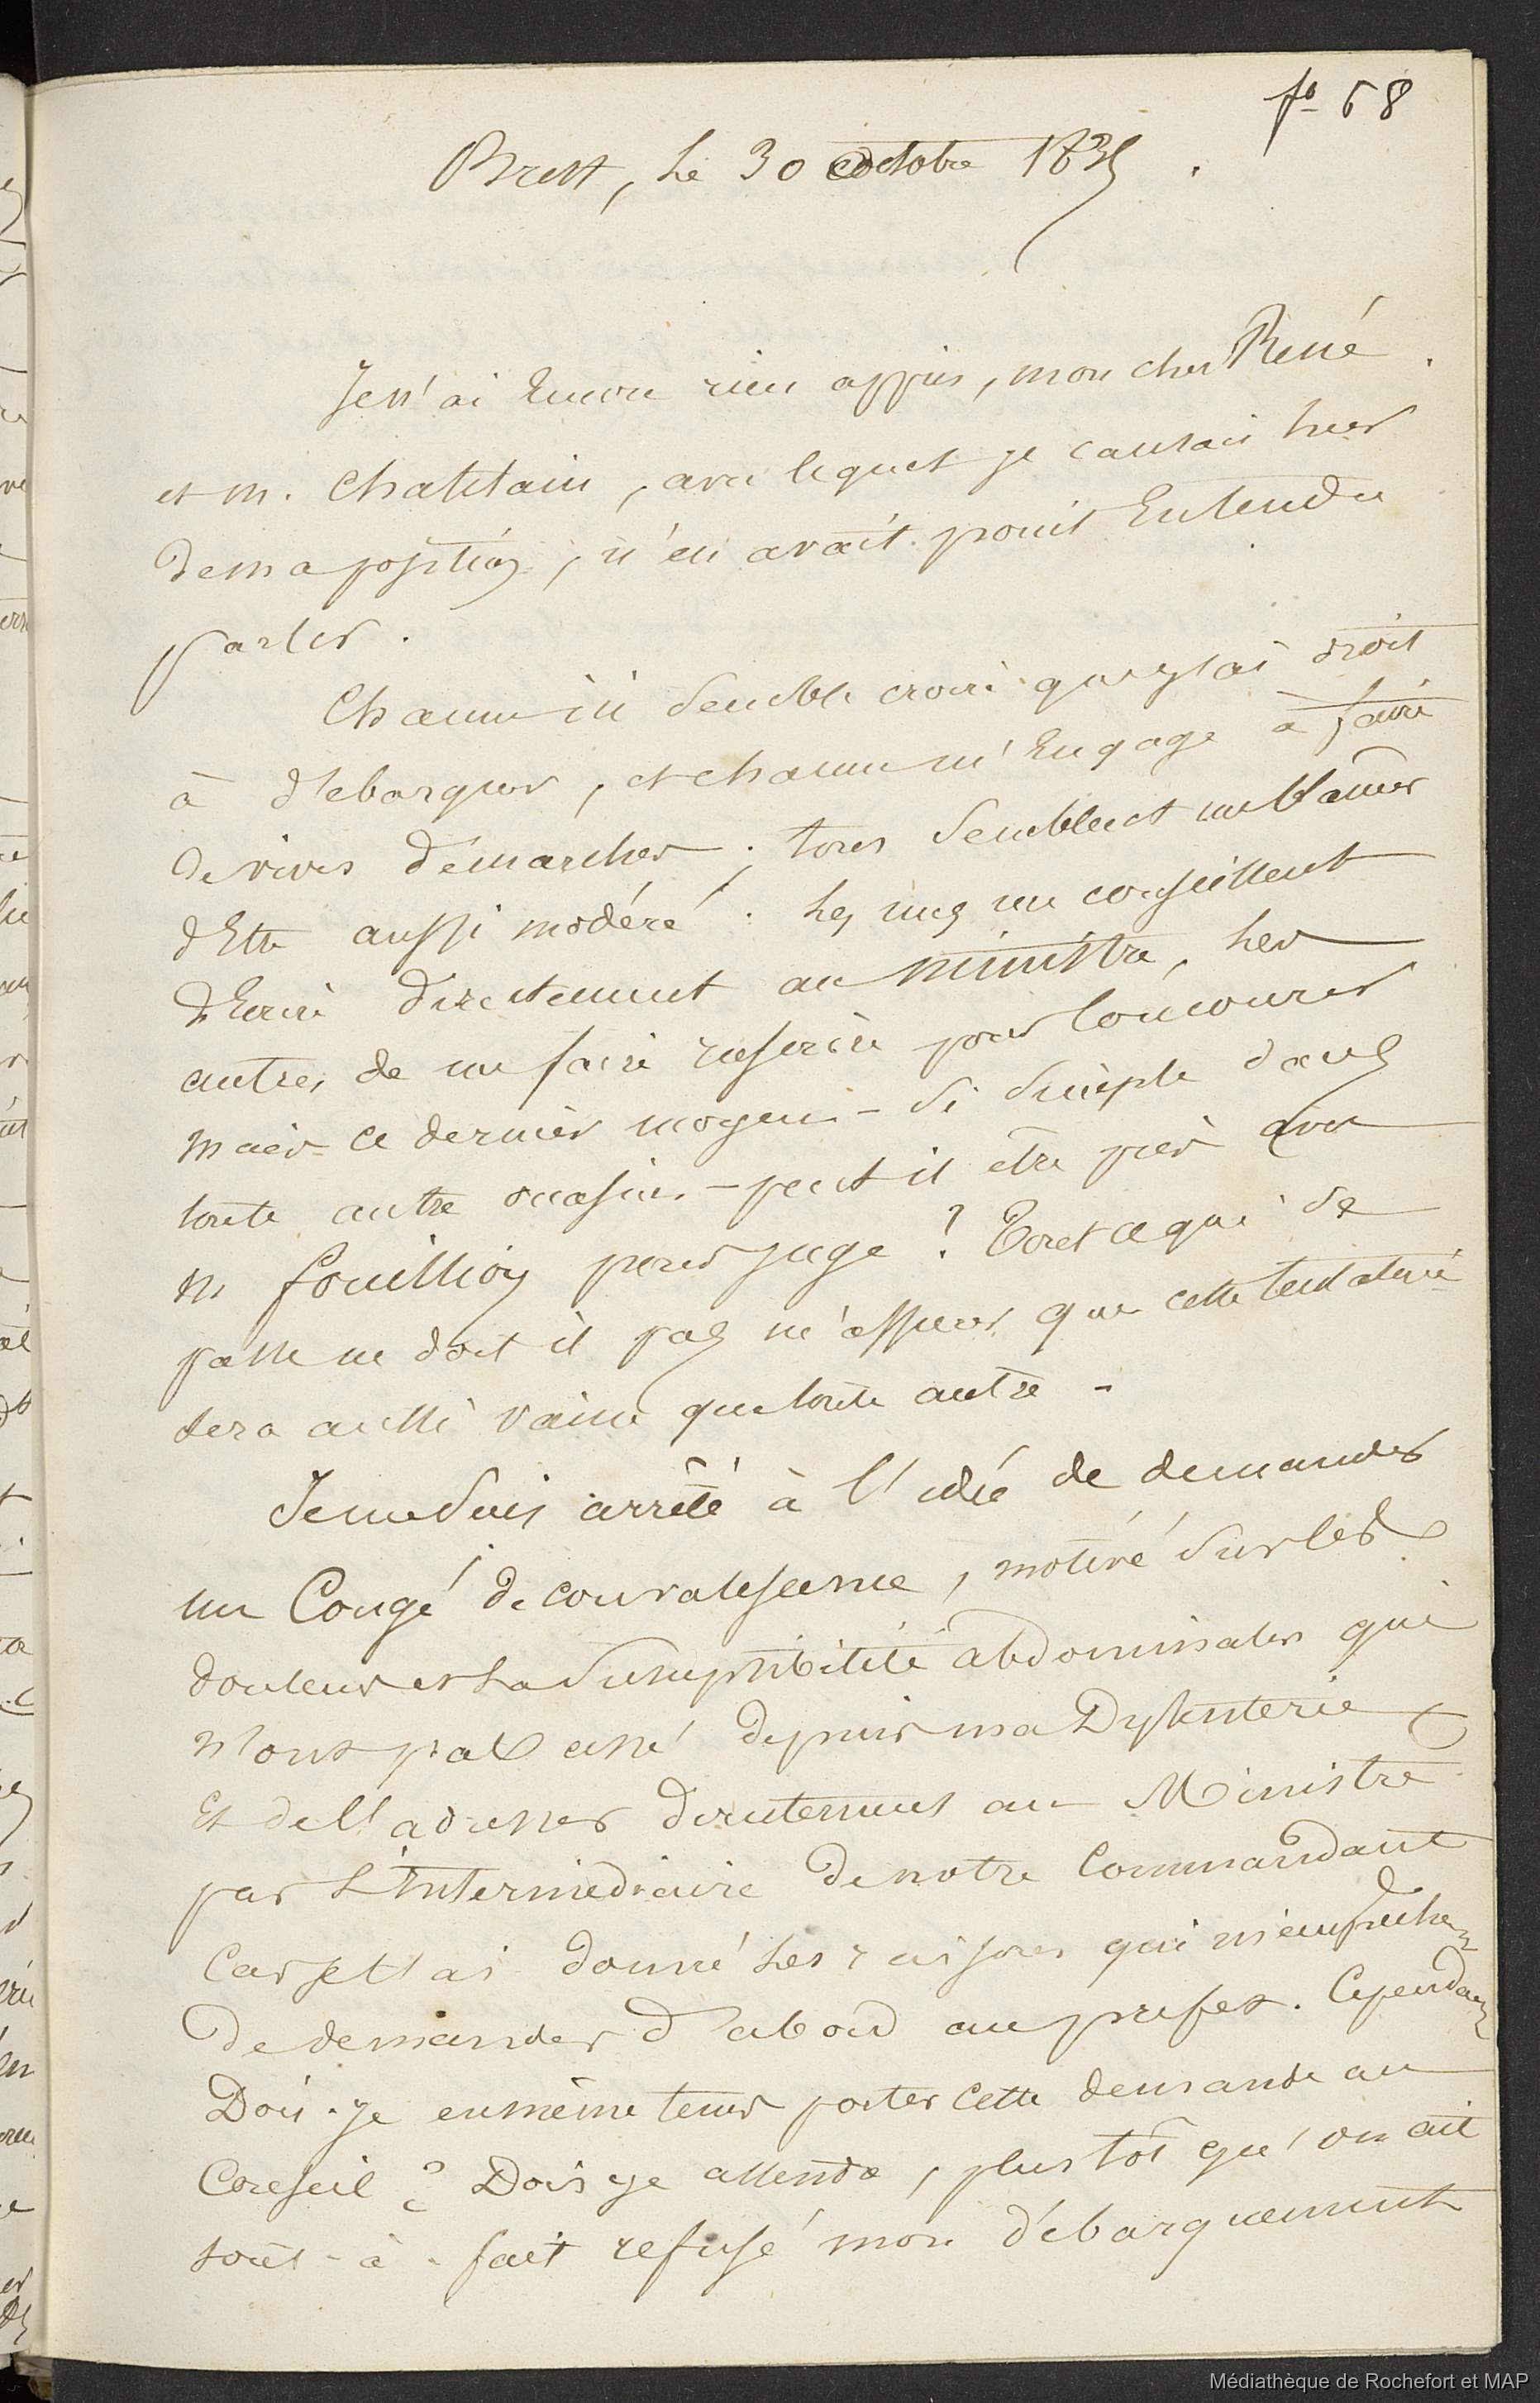 fo 68
Brest, le 30 octobre 183
Je n'ai Encore rien appris, mon cher René.
et m. Chatelain, avec lequel je causais hier
de ma position, n'en avait point Entendu
parler.
Chacun ici semble croire que j'ai droit
à débarquer, et chacun m'Engage à faire
de vives démarches; tous semblent me blamer
d'Etre aussi modéré. Les uns me conseillent
d'Ecrire directement au ministre, les
autres de me faire inscrire pour concourir
mais ce dernier moyen - si simple dans
toute autre occasion - peut il être pris avec
m fouillioy pour juge? Tout ce qui se
passe ne doit il pas m'assurer que cette tentative
sera aussi vaine que toute autre -
Je me suis arrêté à l'idée de demander
un Congé de convalescence, motivé sur les
douleurs et la susceptibilité abdominales qui
n'ont pas cessé depuis ma Dyssenterie
Et de l'adresser directement au Ministre
par L'Intermédiaire de notre Commandant
Car je t'ai donné les raisons qui m'empechen
de demander d'abord au prefet. Cependan
Dois-je en même tems porter cette demande au
Conseil? Dois je attendre, plus tôt qu'on ait
tout-à-fait refusé mon débarquement
Médiathèque de Rochefort et MAP